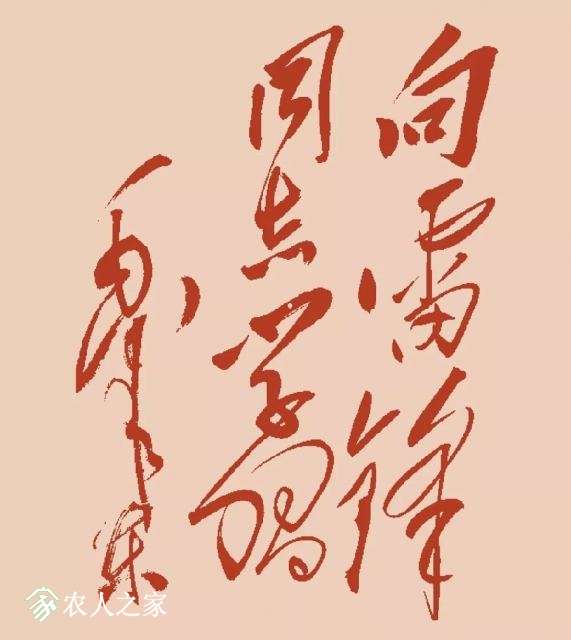 向雷锋
同志学习
毛泽东
农人之家